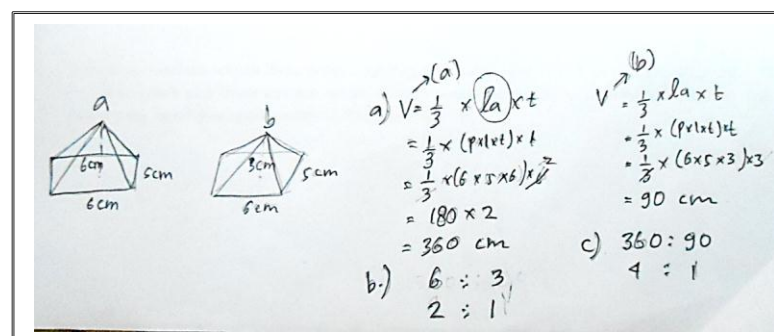 a
6cm
5cm
6cm
b
3cm
5cm
6cm
(a)
a) V = 1/3 × la × t
= 1/3 × (p×l×t) × t
= 1/3 × (6 × 5 × 6) × 6 2
= 180 × 2
= 360 cm
b.) 6 : 3
2 : 1
(b)
V = 1/3 × la × t
= 1/3 × (p×l×t)×t
= 1/3 × (6×5×3)×3
= 90 cm
c) 360 : 90
4 : 1